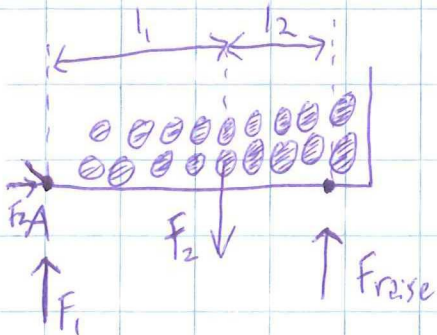 l₁ l₂
F₂A
F₂
F₁
Fraise